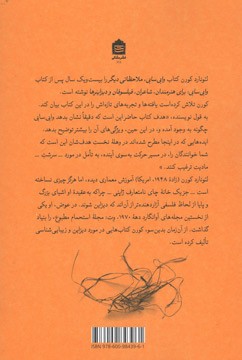 لئونارد کورن کتاب وابی‌سابی، ملاحظاتی دیگر را بیست‌ویک سال پس از کتاب
وابی‌سابی، برای هنرمندان، شاعران، فیلسوفان و دیزاینرها نوشته است.
کورن تلاش کرده‌است یافته‌ها و تجربه‌های تازه‌اش را در این کتاب بیان کند.
به قول نویسنده، «هدف کتاب حاضر این است که دقیقا نشان بدهد وابی‌سابی
چگونه به وجود آمده و، در این حین، ویژگی‌های آن را بیشتر توضیح بدهد.
ایده‌هایی که در اینجا مطرح شده‌اند در وهلهٔ نخست هدف‌شان این است که
شما خوانندگان را، در مسیر حرکت به‌سوی آینده، به تأمل در مورد ... سرشتِ ...
مادیت ترغیب کنند.»
لئونارد کورن (زادهٔ ۱۹۴۸، آمریکا) آموزش معماری دیده، اما هرگز چیزی نساخته
است ــ جز یک خانهٔ چای نامتعارف ژاپنی ــ چراکه به عقیدهٔ او اشیای بزرگ
و پایا از لحاظ فلسفی آزاردهنده‌تر از آن‌اند که دیزاین شوند. در عوض، او یکی
از نخستین مجله‌های آوانگارد دههٔ ۱۹۷۰، وت: مجلهٔ استحمام مطبوع، را بنیاد
گذاشت. از آن‌زمان بدین‌سو، کورن کتاب‌هایی در مورد دیزاین و زیبایی‌شناسی
تألیف کرده است.